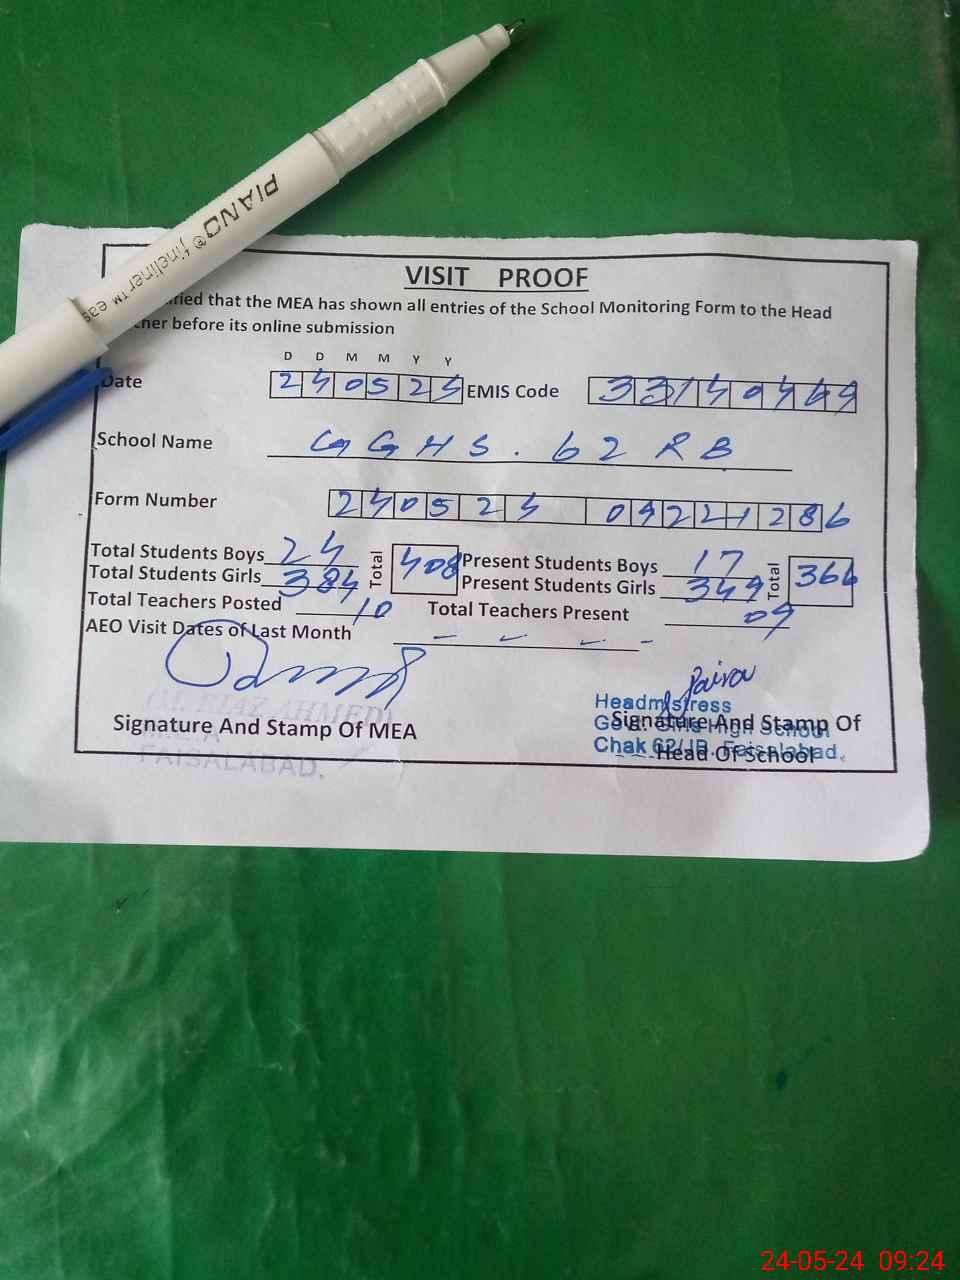 PIANO® fineliner™ eas
VISIT PROOF
ried that the MEA has shown all entries of the School Monitoring Form to the Head
cher before its online submission
D D M M Y Y
Date 240524 EMIS Code
School Name GGHS. 62 RB
Form Number 240524
Total Students Boys 24 Total 408 Present Students Boys 17 Total 366
Total Students Girls 384 Present Students Girls 349
Total Teachers Posted 10 Total Teachers Present 09
AEO Visit Dates of Last Month - - - -
(M. RIAZ AHMED)
Signature And Stamp Of MEA
M.E.A
FAISALABAD.
Headmistress
Signature And Stamp Of
Govt. Girls High School
Chak 62/JB. Faisalabad.
Head Of School
24-05-24 09:24